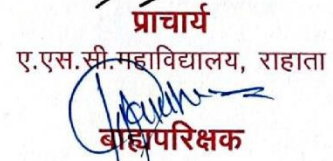 प्राचार्य
ए.एस.सी.महाविद्यालय, राहाता
बाह्यपरिक्षक